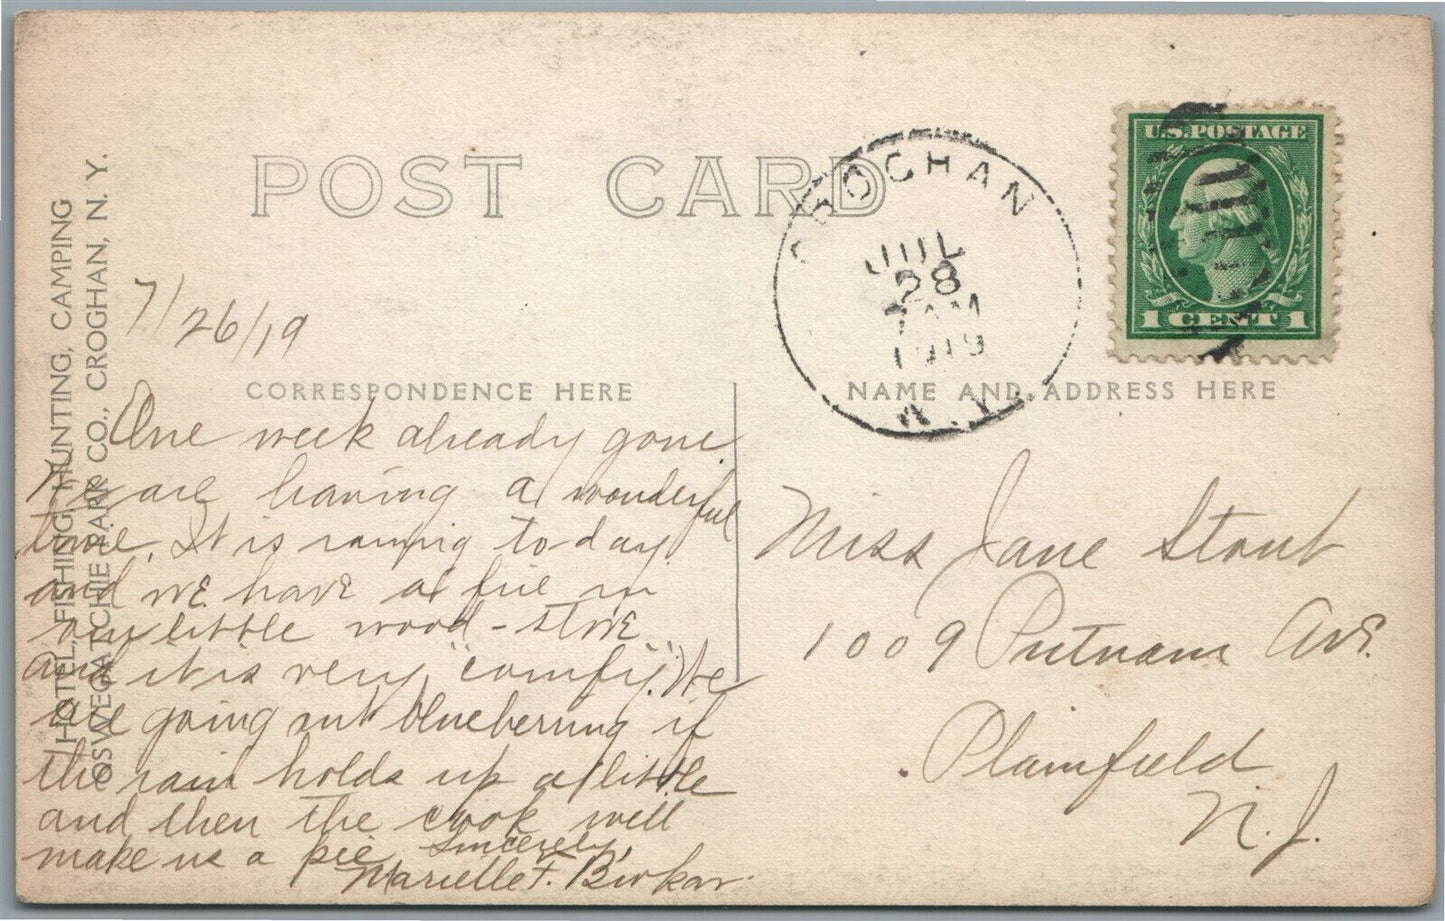 POST CARD
HOTEL, FISHING, HUNTING, CAMPING
OSWEGATCHIE PARK CO., CROGHAN, N. Y.
CROGHAN
JUL
28
AM
1919
N.Y.
U.S. POSTAGE
1 CENT 1
7/26/19
CORRESPONDENCE HERE
NAME AND ADDRESS HERE
One week already gone.
We are having a wonderful
time. It is raining today
and we have a fire in
our little wood-stove
and it is very "comfy". We
are going out blueberrying if
the rain holds up a little
and then the cook will
make us a pie. Sincerely,
Marielle F.
Miss Jane Stout
1009 Putnam Ave.
Plainfield
N. J.